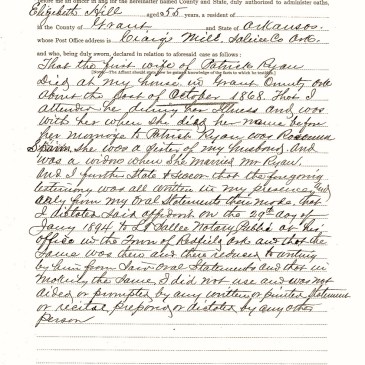 before me in and for the hereinafter named County and State, duly authorized to administer oaths,
Elizabeth Hill aged 55 years, a resident of
in the County of Grant and State of Arkansas.
whose Post Office address is Craigs Mill, Saline Co Ark
and who, being duly sworn, declared in relation to aforesaid case as follows:
That the first wife of Patrick Ryan
[NOTE.—The Affiant should state how he gained knowledge of the facts to which he testifies.]
Died at my house in Grant County Ark
about the last of October 1868. That I
attended her during her illness and was
with her when she died her name before
her marriage to Patrick Ryan was Rosanna
she was a sister of my Husband. and
was a widow when she married Mr Ryan.
and I further State & swear that the foregoing
testimony was all written in my presence and
only from my Oral Statements then made. that
I dictated said affidavit on the 29th day of
Jany 1894 to Notary Public at his
office in the Town of Redfield, Ark and that the
same was then and there reduced to writing
by him from Oral Statements and that in
making the same, I did not use and was not
aided or prompted by any written or printed statement
or recital prepared or dictated by any other
person